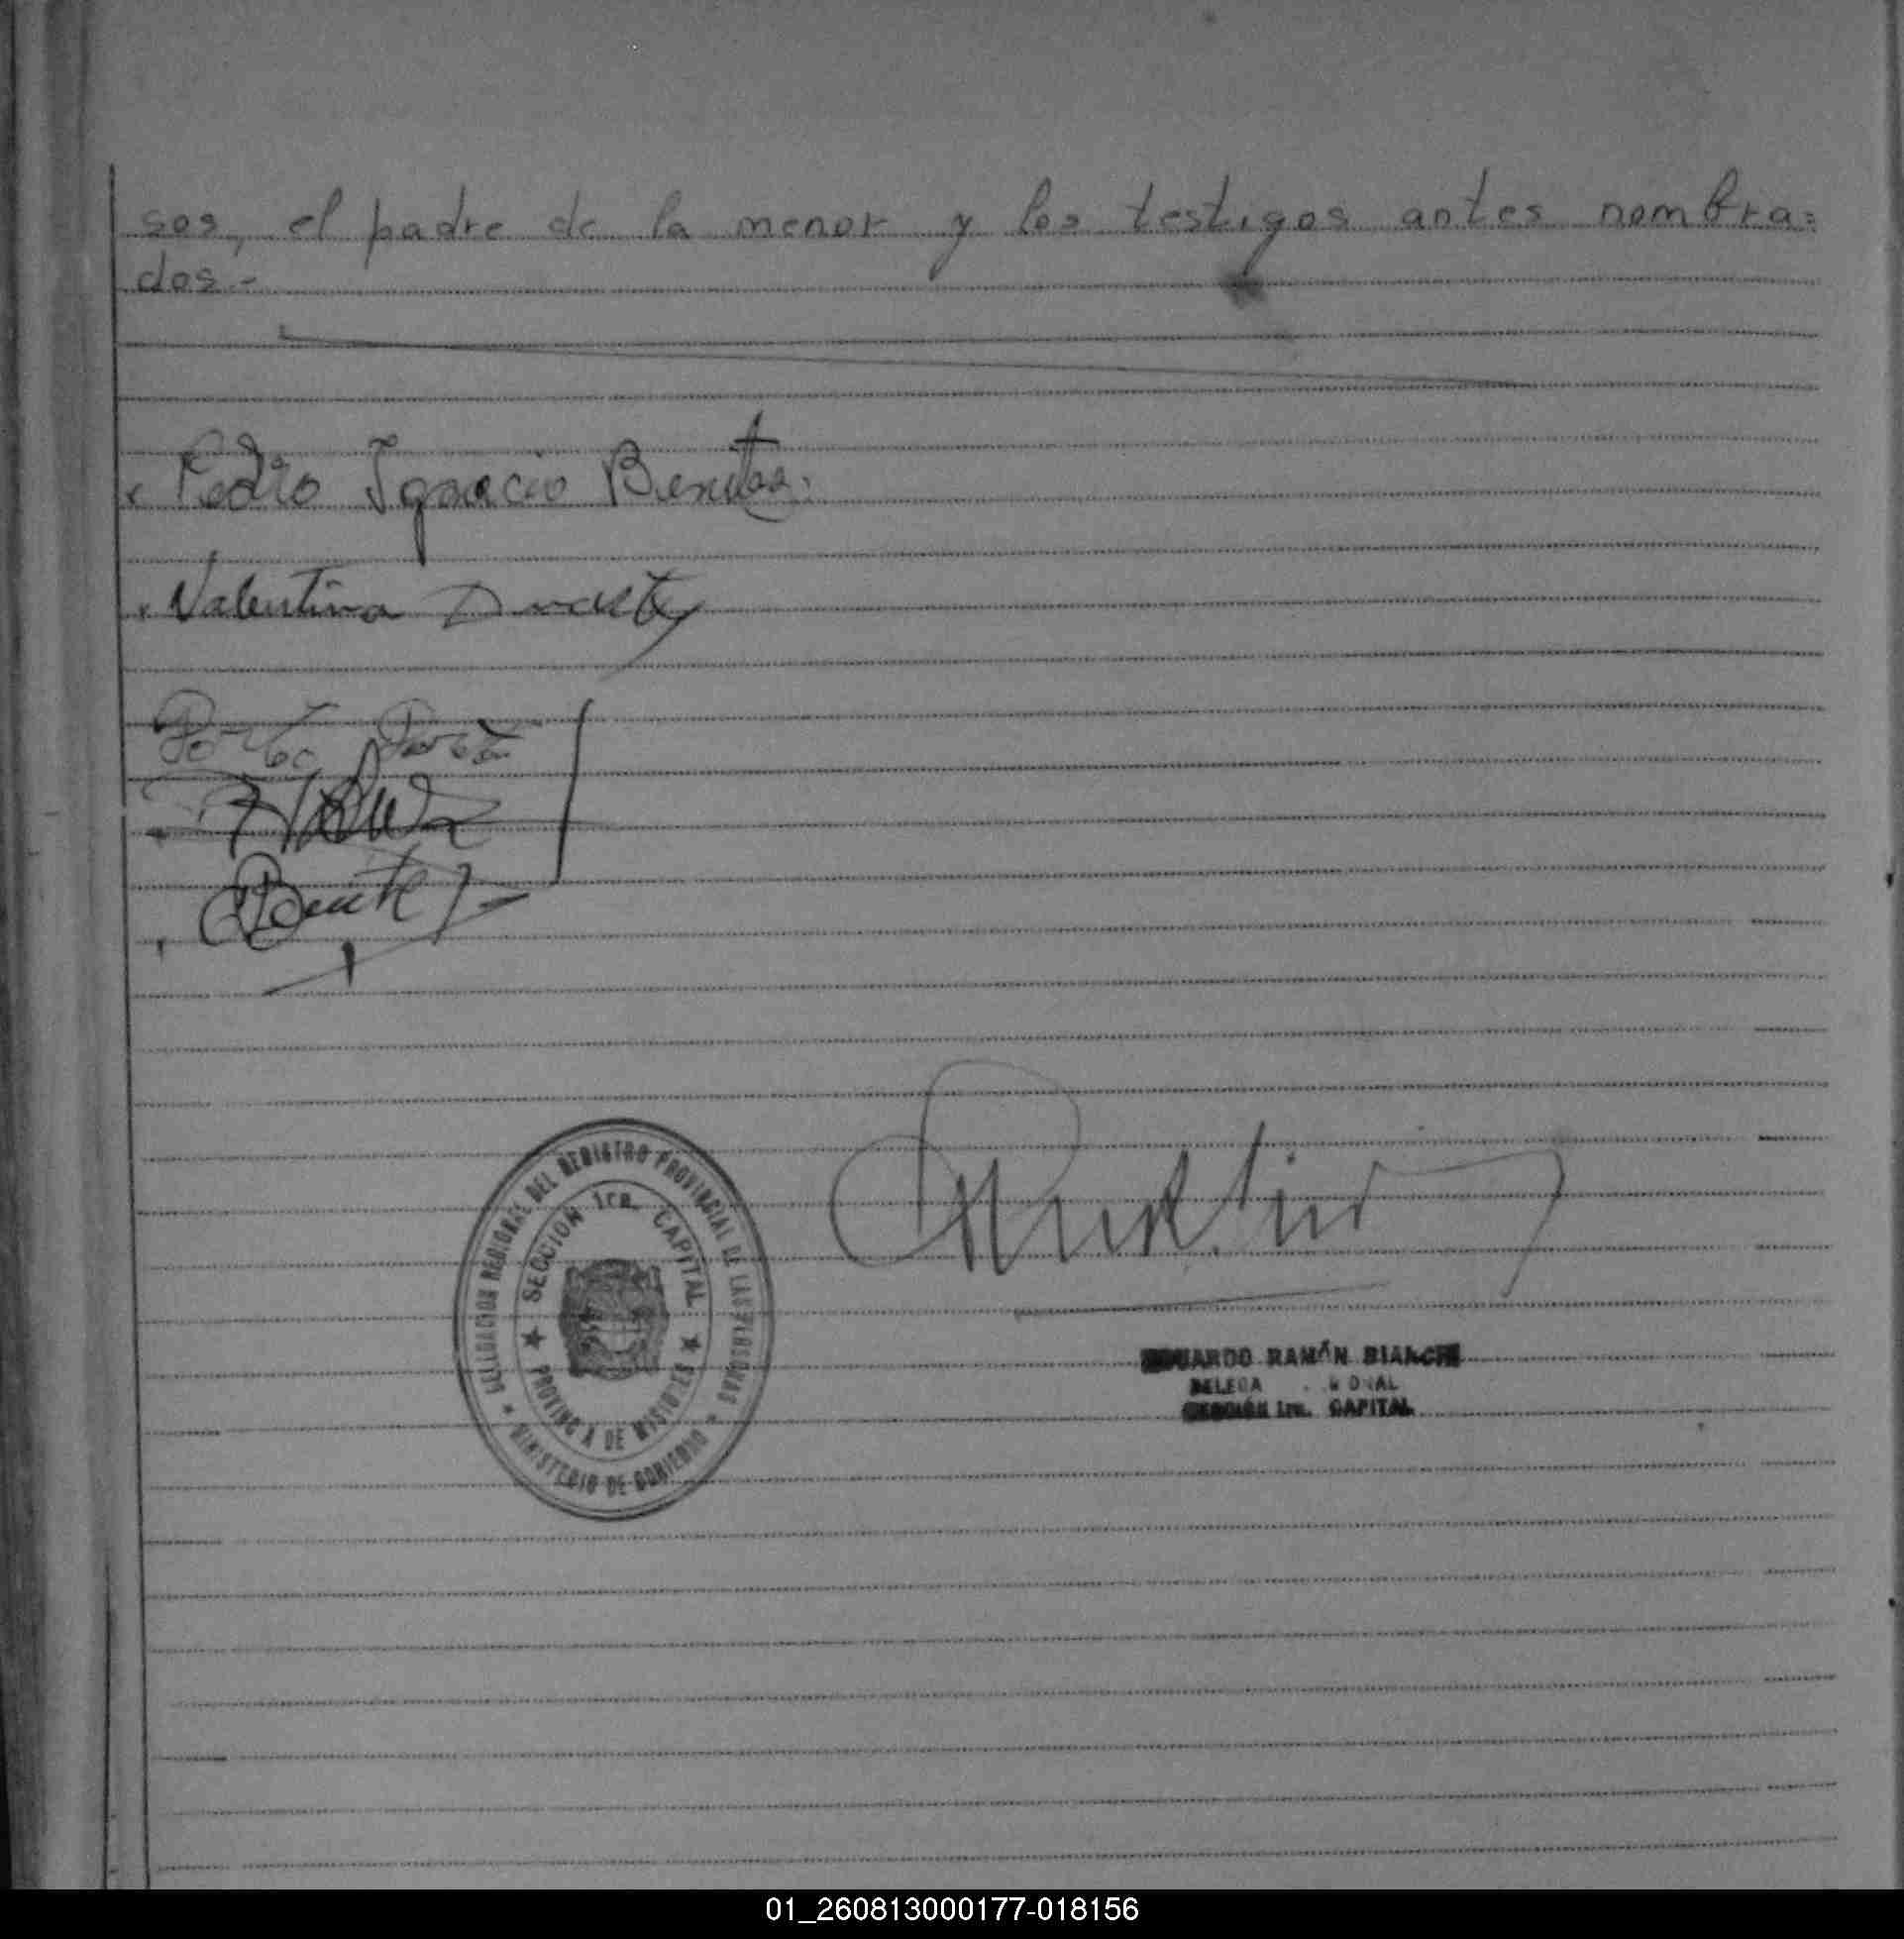 sos, el padre de la menor y los testigos antes nombra=
dos.-
Pedro Ignacio Benitez.
Valentina Duarte
Benitez
DELEGACION REGIONAL DEL REGISTRO PROVINCIAL DE LAS PERSONAS
SECCION 1ra. CAPITAL
PROVINCIA DE MISIONES
MINISTERIO DE GOBIERNO
EDUARDO RAMÓN BIANCHI
SECCIÓN 1ra. CAPITAL
01_260813000177-018156